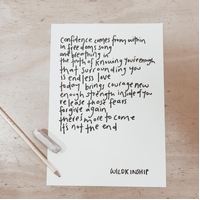 confidence comes from within
in freedoms song
and breathing in
the truth of knowing you're enough
that surrounding you
is endless love
today brings courage new
enough strength inside of you
release those fears
forgive again
theres more to come
its not the end
WILDKINSHIP